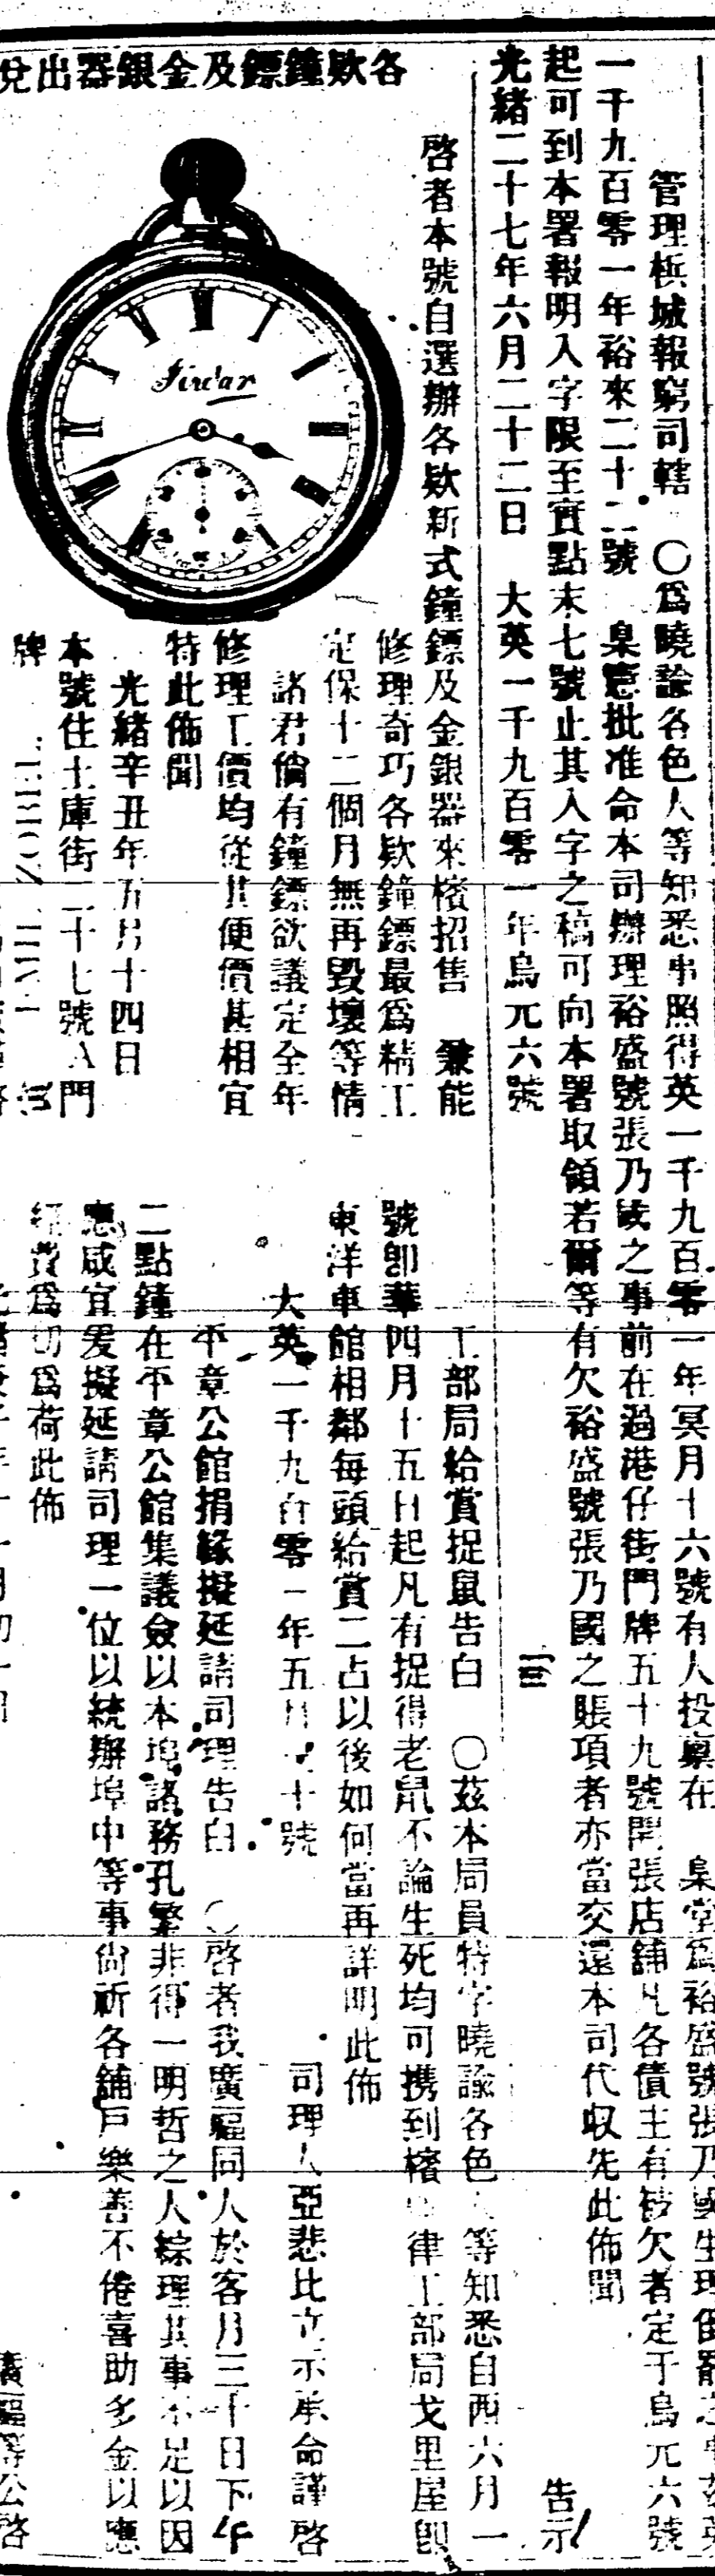 管理梹城報窮司轄　〇爲曉諭各色人等知悉事照得英一千九百零一年冥月十六號有人投稟在　臬堂爲裕盛號張乃國生理倒罷之事茲英
一千九百零一年裕來二十二號　臬憲批准命本司辦理裕盛號張乃國之事前在過港仔街門牌五十九號開張店舖凡各債主有被欠者定于烏元六號
起可到本署報明入字限至實點末七號止其入字之稿可向本署取領若爾等有欠裕盛號張乃國之賬項者亦當交還本司代収先此佈聞
光緒二十七年六月二十二日　大英一千九百零一年烏元六號　告示
各欵鐘鏢及金銀器出兌
Jirdar
啓者本號自選辦各欵新式鐘鏢及金銀器來檳招售　兼能
修理奇巧各欵鐘鏢最爲精工
定保十二個月無再毀壞等情
諸君倘有鐘鏢欲議定全年
修理工價均從其便價甚相宜
特此佈聞
光緒辛丑年五月十四日
本號住土庫街二十七號A門
牌
工部局給賞捉鼠告白　〇茲本局員特字曉諭各色人等知悉自西六月一
號卽華四月十五日起凡有捉得老鼠不論生死均可携到檳　律工部局戈里屋卽
東洋車館相鄰每頭給賞二占以後如何當再詳明此佈
大英一千九百零一年五月　十號　司理人亞悲比立示承命謹啓
平章公館捐緣擬延請司理告白　〇啓者我廣福同人於客月三十日下午
二點鐘在平章公館集議僉以本埠諸務孔繁非得一明哲之人綜理其事不足以因
應咸宜爰擬延請司理一位以統辦埠中等事尙祈各舖戶樂善不倦喜助多金以應
經費爲切爲荷此佈
廣福等公啓